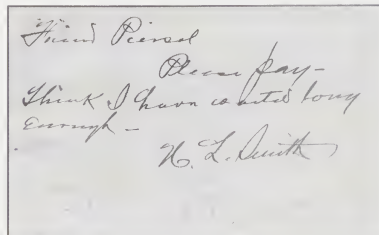 Friend Piersol
Please pay–
Think I have waited long
enough –
H. L. Smith